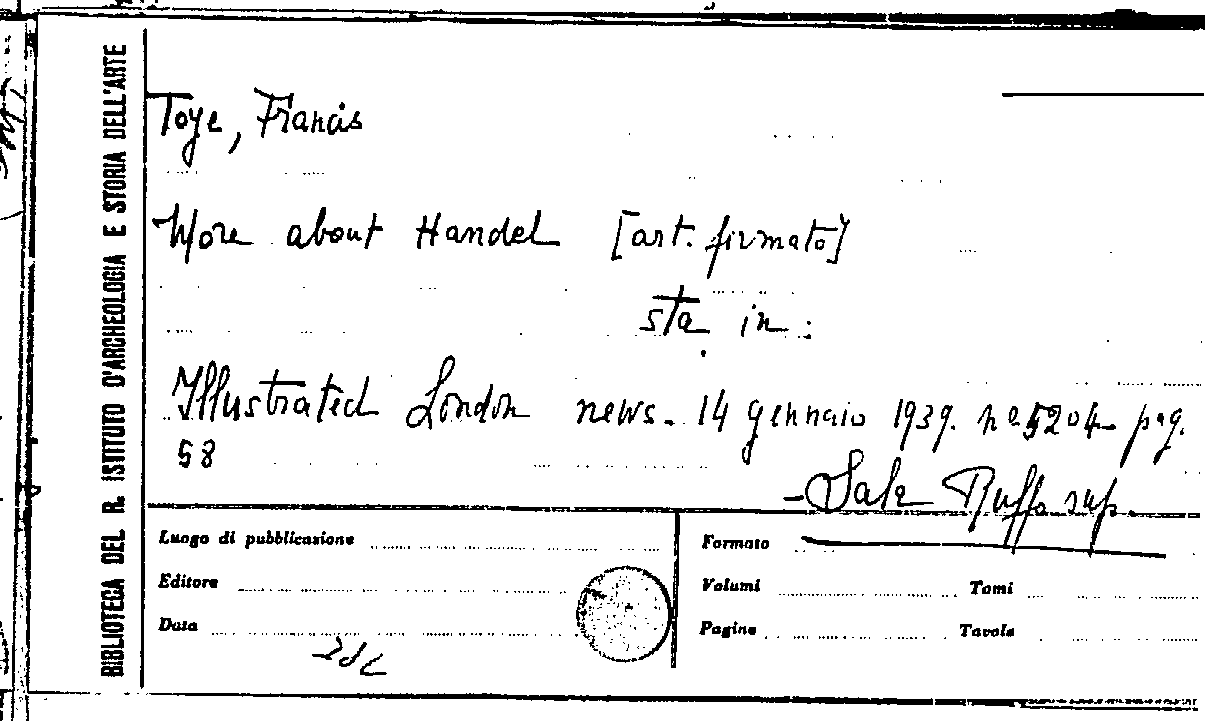 BIBLIOTECA DEL R. ISTITUTO D'ARCHEOLOGIA E STORIA DELL'ARTE
Toye, Francis
More about Handel [art. firmato]
sta in:
Illustrated London news. 14 gennaio 1939. no 5204 pag.
58
Sala Ruffo sup.
Luogo di pubblicazione
Formato
Editore
Volumi Tomi
Data
Pagine Tavole